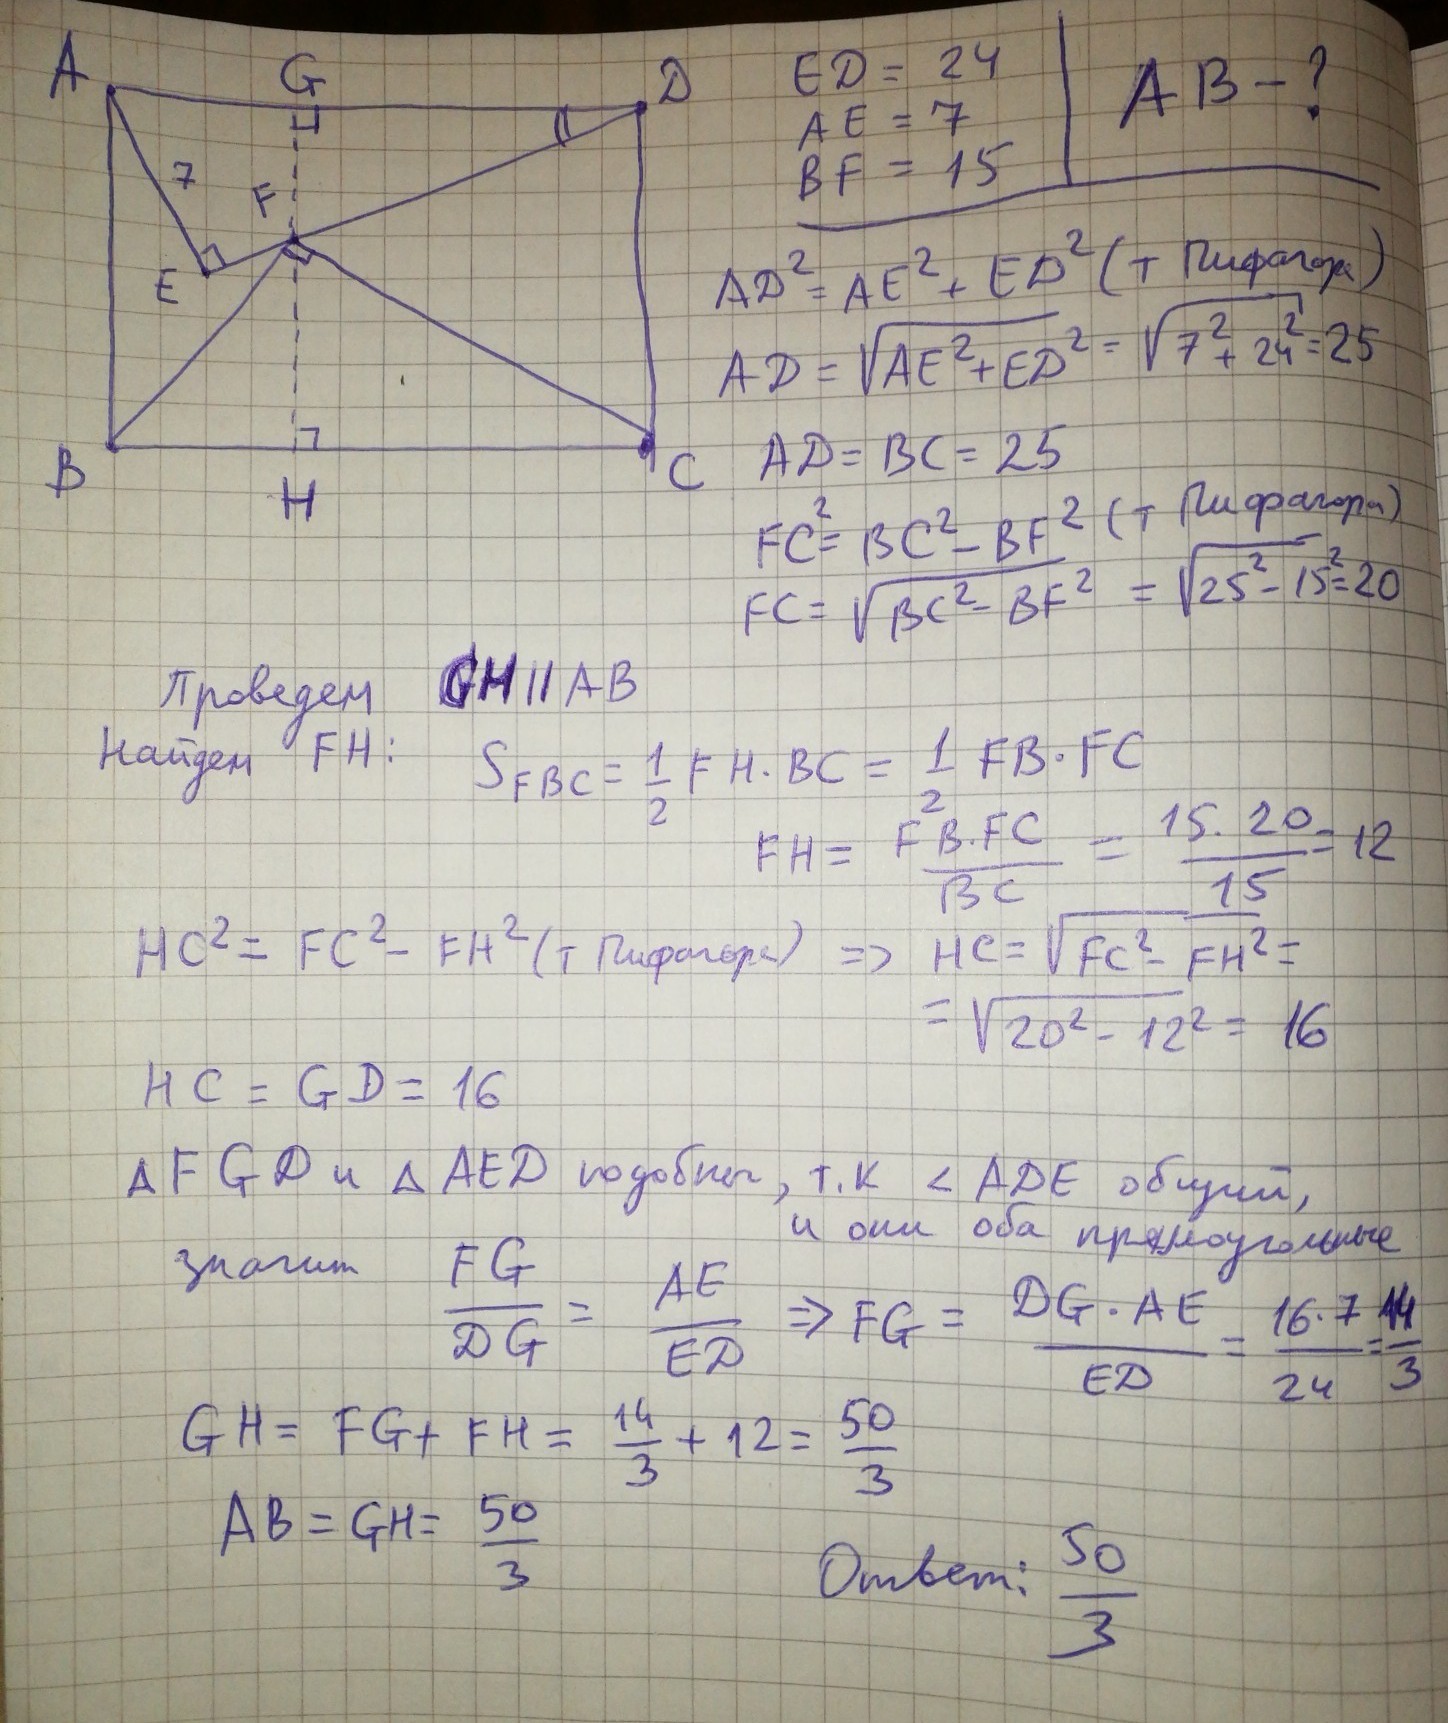 A G D
7
F
E
B H C
ED = 24
AE = 7
BF = 15
AB - ?
AD² = AE² + ED² (т Пифагора)
AD = √AE² + ED² = √7² + 24² = 25
AD = BC = 25
FC² = BC² - BF² (т Пифагора)
FC = √BC² - BF² = √25² - 15² = 20
Проведем GH || AB
Найдем FH: S_FBC = 1/2 FH · BC = 1/2 FB · FC
FH = FB·FC/BC = 15·20/15 = 12
HC² = FC² - FH² (т Пифагора) => HC = √FC² - FH² =
= √20² - 12² = 16
HC = GD = 16
△FGD и △AED подобны, т.к < ADE общий,
и они оба прямоугольные
значит FG/DG = AE/ED => FG = DG·AE/ED = 16·7/24 = 14/3
GH = FG + FH = 14/3 + 12 = 50/3
AB = GH = 50/3
Ответ: 50/3